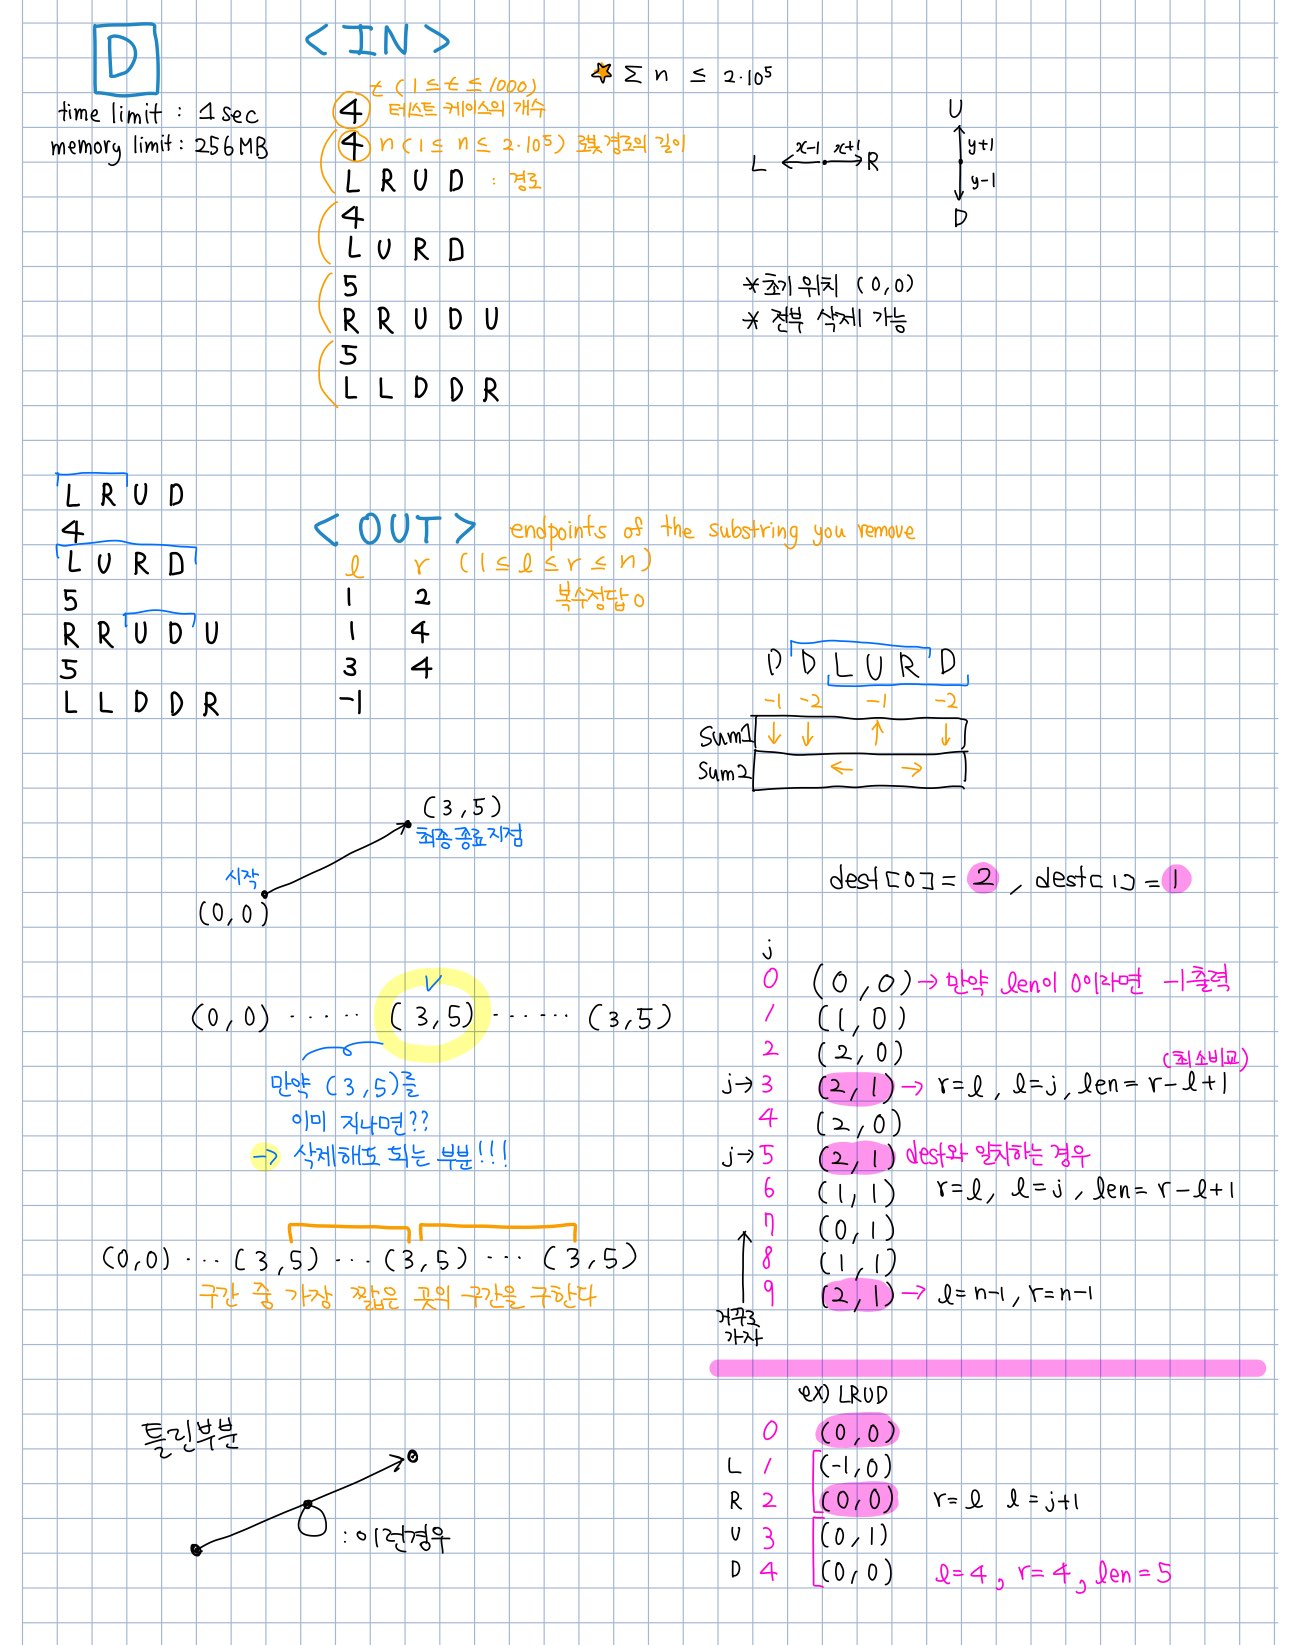 D
time limit : 1 sec
memory limit : 256 MB
< IN >
t (1 ≤ t ≤ 1000)
4 테스트 케이스의 개수
4 n (1 ≤ n ≤ 2·10⁵) 로봇 경로의 길이
L R U D : 경로
4
L U R D
5
R R U D U
5
L L D D R
★ Σ n ≤ 2·10⁵
L x-1 x+1 R
U
y+1
y-1
D
* 초기 위치 (0,0)
* 전부 삭제 가능
L R U D
4
L U R D
5
R R U D U
5
L L D D R
< OUT > endpoints of the substring you remove
l r (1 ≤ l ≤ r ≤ n)
1 2 복수정답 o
1 4
3 4
-1
D D L U R D
-1 -2 -1 -2
Sum1 ↓ ↓ ↑ ↓
Sum2 ← →
(3,5)
최종 종료지점
시작
(0,0)
(0,0) ······ (3,5) ······ (3,5)
만약 (3,5)를
이미 지나면??
→ 삭제해도 되는 부분!!!
(0,0) ··· (3,5) ··· (3,5) ··· (3,5)
구간 중 가장 짧은 곳의 구간을 구한다
틀린부분
: 이런경우
dest[0] = 2 , dest[1] = 1
j
0 (0,0) → 만약 len이 0이라면 -1출력
1 (1,0)
2 (2,0) (최소비교)
j→ 3 (2,1) → r=l, l=j, len= r-l+1
4 (2,0)
j→ 5 (2,1) dest와 일치하는 경우
6 (1,1) r=l, l=j, len= r-l+1
7 (0,1)
8 (1,1)
9 (2,1) → l=n-1, r=n-1
거꾸로
가자
ex) LRUD
0 (0,0)
L 1 (-1,0)
R 2 (0,0) r=l l=j+1
U 3 (0,1)
D 4 (0,0) l=4, r=4, len=5